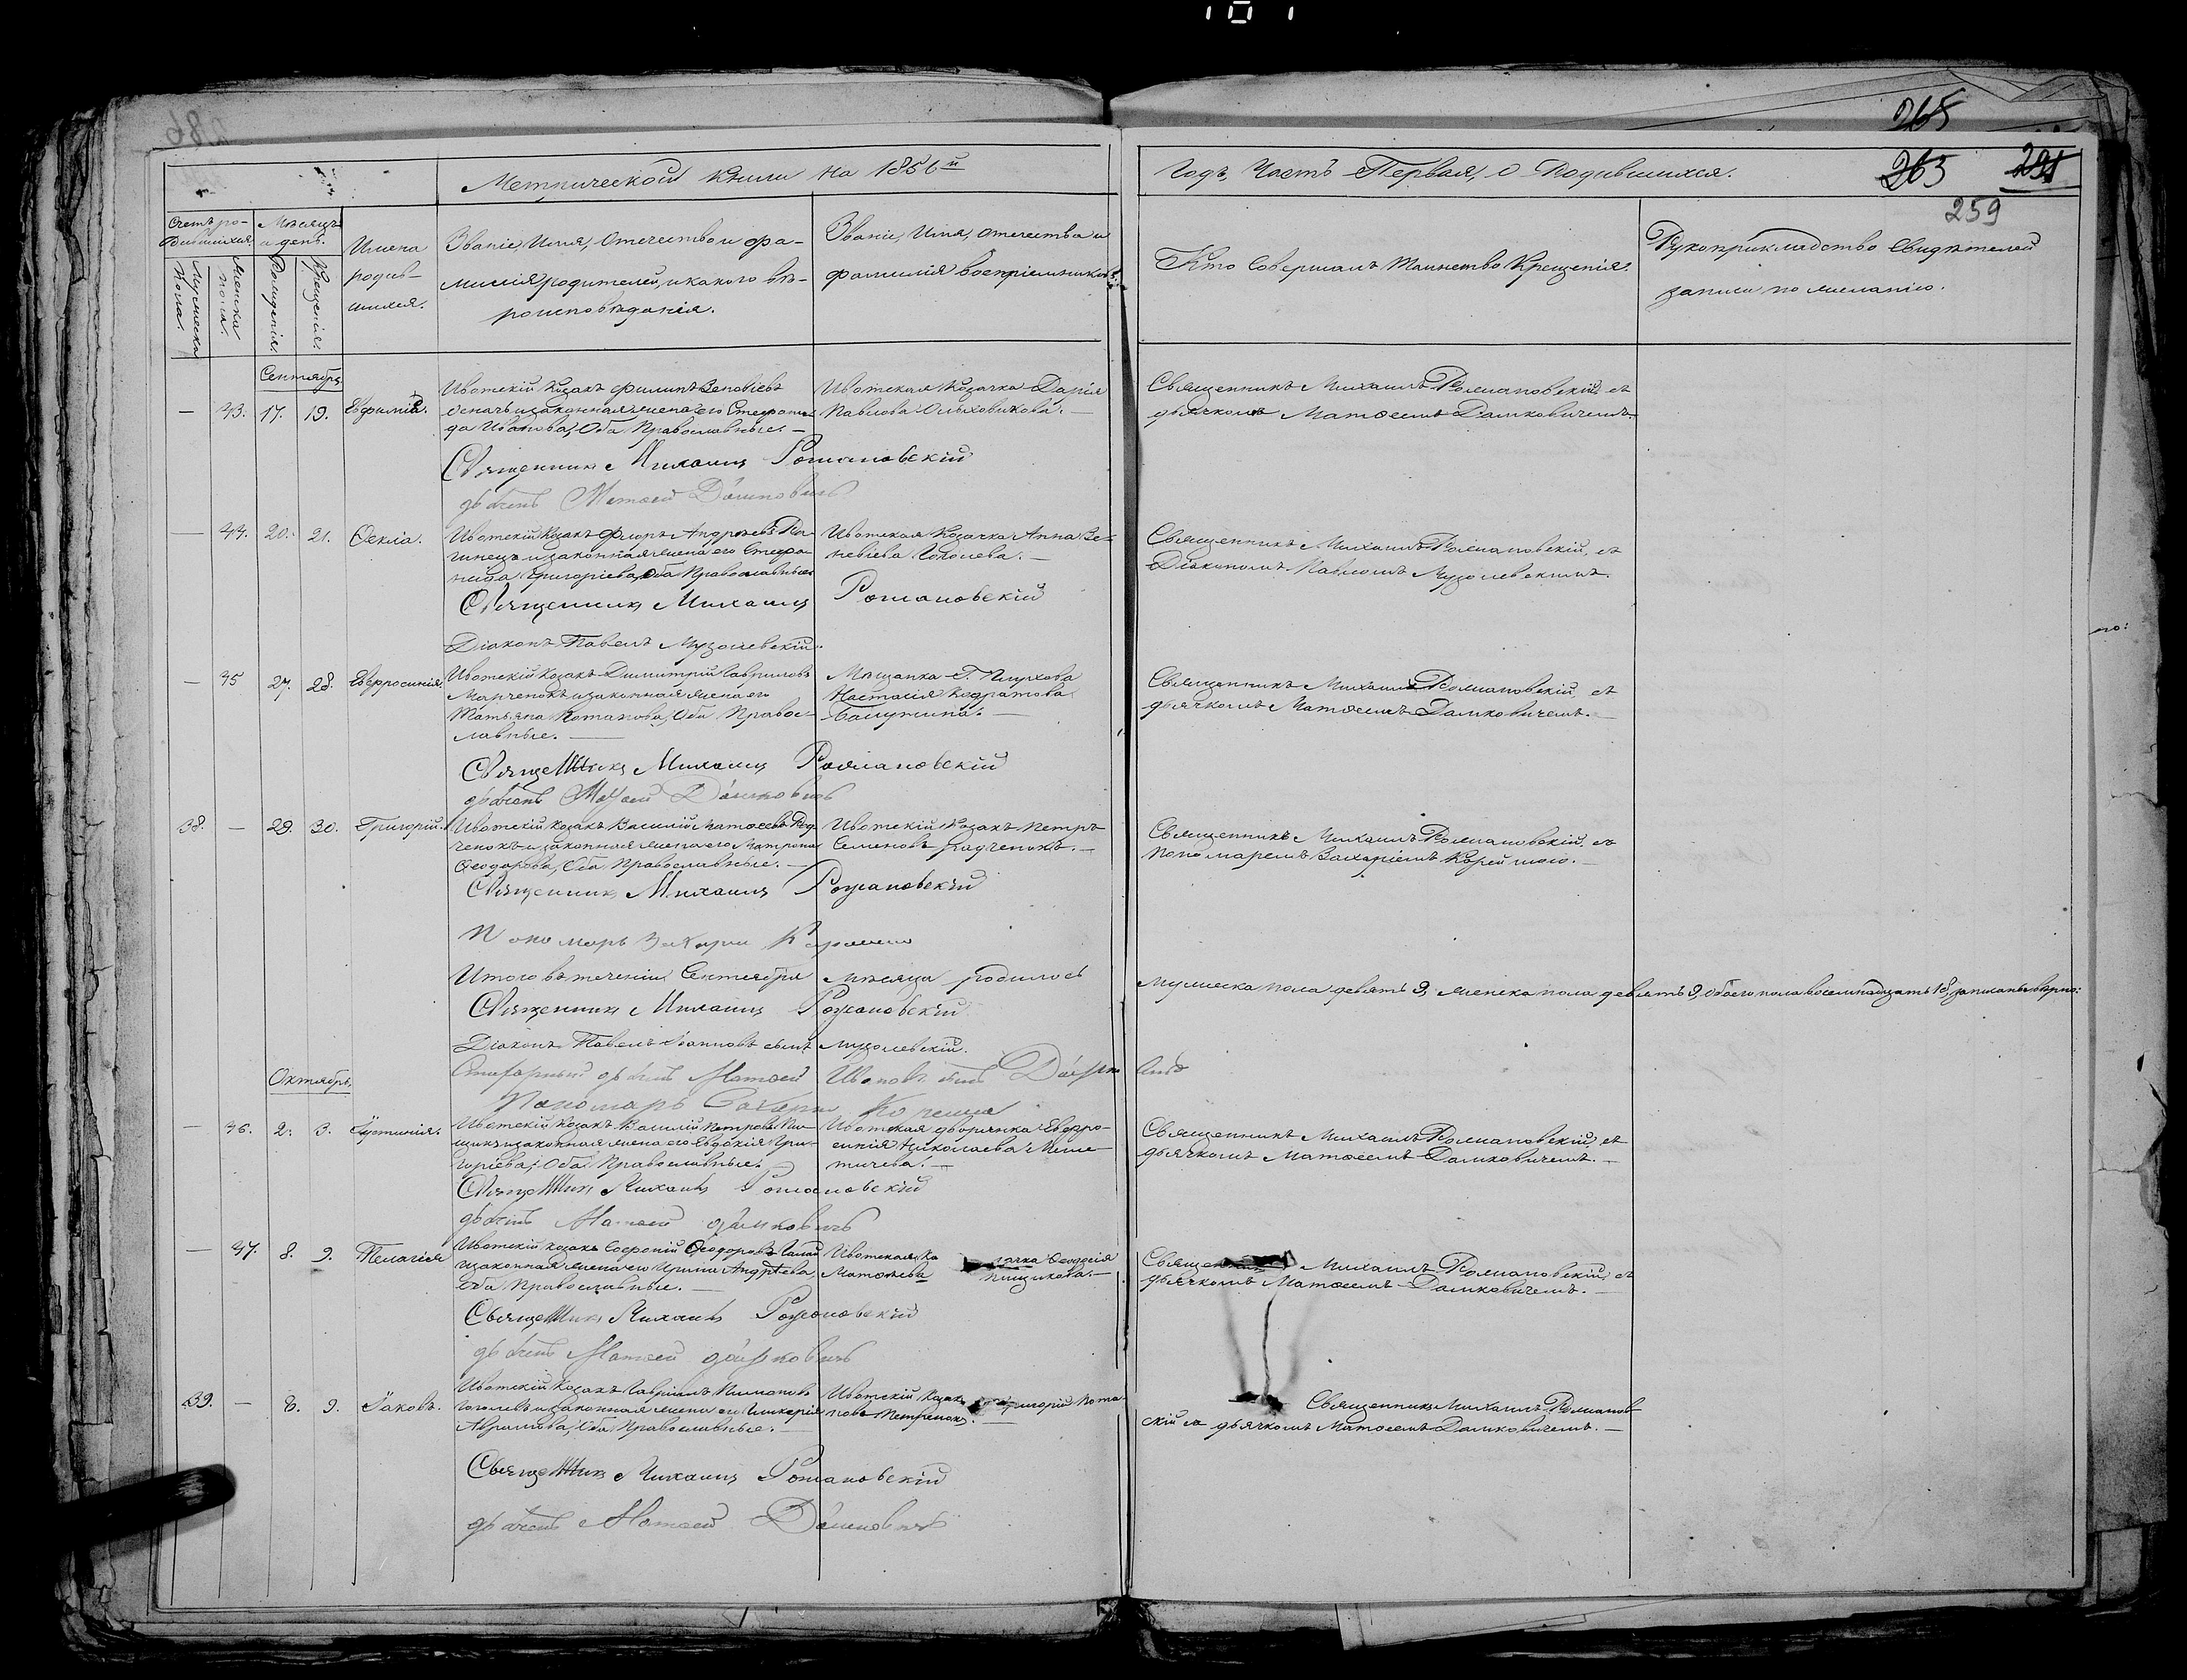 265
Метрической книги на 1856й
Годъ, Часть Первая, о Родившихся.
263
291
259
Счетъ ро-
дившихся.
Мужеска
пола.
Женска
пола.
Мѣсяцъ
и день.
Рожденія.
Крещенія.
Имена
родив-
шихся.
Званіе Имя, Отечество и фа-
милія родителей, и какого вѣ-
роисповѣданія.
Званіе, Имя, отечество и
фамилія воспріемниковъ.
Кто Совершалъ Таинство Крещенія.
Рукоприкладство Свидѣтелей
записи по желанію.
Сентябрь
— 43. 17. 19. Евфимія.
Ивотскій Козакъ Филипъ
и законная жена его Стефани-
да Иванова, Оба Православные. —
Ивотская Козачка Дарія
Павлова Ольховикова. —
Священникъ Михаилъ Романовскій, съ
дьячкомъ Матѳеемъ Дашковичемъ.
Священникъ Михаилъ Романовскій
дьячекъ Матѳей Дашковичъ
— 44. 20. 21. Ѳекла.
Ивотскій Козакъ Флоръ Андреевъ
и законная жена его Стефа-
нида Григоріева, Оба Православные
Ивотская Козачка Анна Зе-
новіева Гоголева. —
Священникъ Михаилъ Романовскій, съ
Діакономъ Павломъ Музолевскимъ.
Священникъ Михаилъ Романовскій
Діаконъ Павелъ Музолевскій.
— 45 27. 28. Евфросинія.
Ивотскій Козакъ Димитрій Гавриловъ
Марченокъ и законная жена его
Татьяна Потапова, Оба Правос-
лавные. —
Мѣщанка Г. Глухова
Настасія Кодратова
—
Священникъ Михаилъ Романовскій, съ
дьячкомъ Матѳеемъ Дашковичемъ. —
Священникъ Михаилъ Романовскій
дьячекъ Матѳей Дашковичъ
38. — 29. 30. Григорій.
Ивотскій Козакъ Василій Матѳеевъ Рад-
ченокъ и законная жена его Матрона
Ѳеодорова, Оба Православные. —
Ивотскій Козакъ Петръ
Семеновъ Радченокъ. —
Священникъ Михаилъ Романовскій, съ
Пономаремъ Захаріемъ —
Священникъ Михаилъ Романовскій
Пономарь Захарій
Итого въ теченіи Сентября мѣсяца родилось
мужеска пола девять 9, женска пола девять 9, обоего пола восемнадцать 18, записаны вѣрно:
Священникъ Михаилъ Романовскій
Діаконъ Павелъ Іоанновъ сынъ Музолевскій.
дьячекъ Матѳей Ивановъ сынъ Дашковичъ
Пономарь Захарій
Октябрь.
— 46. 2. 3. Іустинія.
Ивотскій Козакъ Василій Петровъ Пи-
щикъ и законная жена его Евдокія Гри-
горіева, Оба Православные. —
Ивотская дворянка Евфро-
синія Николаева
—
Священникъ Михаилъ Романовскій, съ
дьячкомъ Матѳеемъ Дашковичемъ. —
Священникъ Михаилъ Романовскій
дьячекъ Матѳей Дашковичъ
— 47. 8. 9. Пелагія
Ивотскій Козакъ Софроній Ѳеодоровъ
и законная жена его Ирина Андреева
Оба Православные. —
Ивотская Козачка Ѳеодосія
Матѳеева Пищикова. —
Священникъ Михаилъ Романовскій, съ
дьячкомъ Матѳеемъ Дашковичемъ. —
Священникъ Михаилъ Романовскій
дьячекъ Матѳей Дашковичъ
39. — 8. 9. Іаковъ.
Ивотскій Козакъ Гавріилъ
Гоголевъ и законная жена его Гликерія
Абрамова, Оба Православные. —
Ивотскій Козакъ Григорій Пота-
повъ Петренокъ. —
Священникъ Михаилъ Романов-
скій съ дьячкомъ Матѳеемъ Дашковичемъ. —
Священникъ Михаилъ Романовскій
дьячекъ Матѳей Дашковичъ